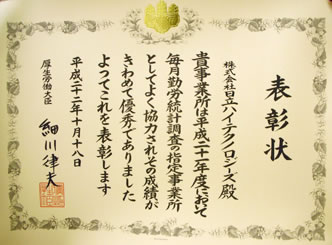 表彰状
株式会社日立ハイテクノロジーズ殿
貴事業所は平成二十一年度において
毎月勤労統計調査の指定事業所
としてよく協力されその成績が
きわめて優秀でありました
よってこれを表彰します
平成二十二年十月十八日
厚生労働大臣
細川律夫